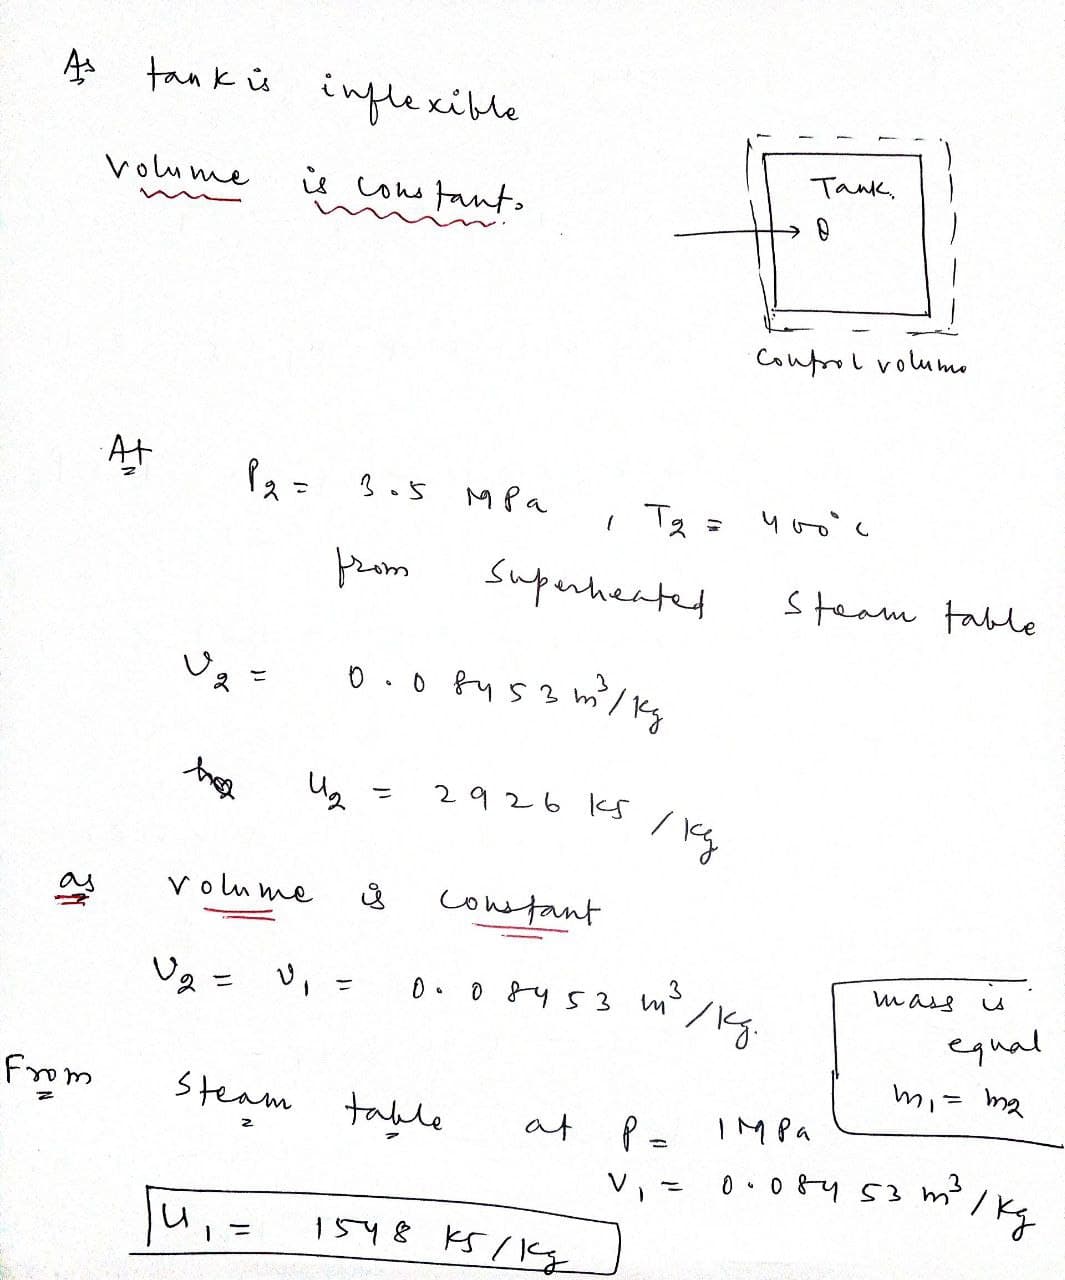 As tank is inflexible
volume is constant.
Tank.
θ
Control volume
At P2 = 3.5 MPa , T2 = 400°C
from superheated steam table
v2 = 0.08453 m³/kg
u2 = 2926 kJ/kg
as volume is constant
v2 = v1 = 0.08453 m³/kg.
mass is
equal
m1 = m2
From steam table at P = 1 MPa
v1 = 0.08453 m³/kg
u1 = 1548 kJ/kg